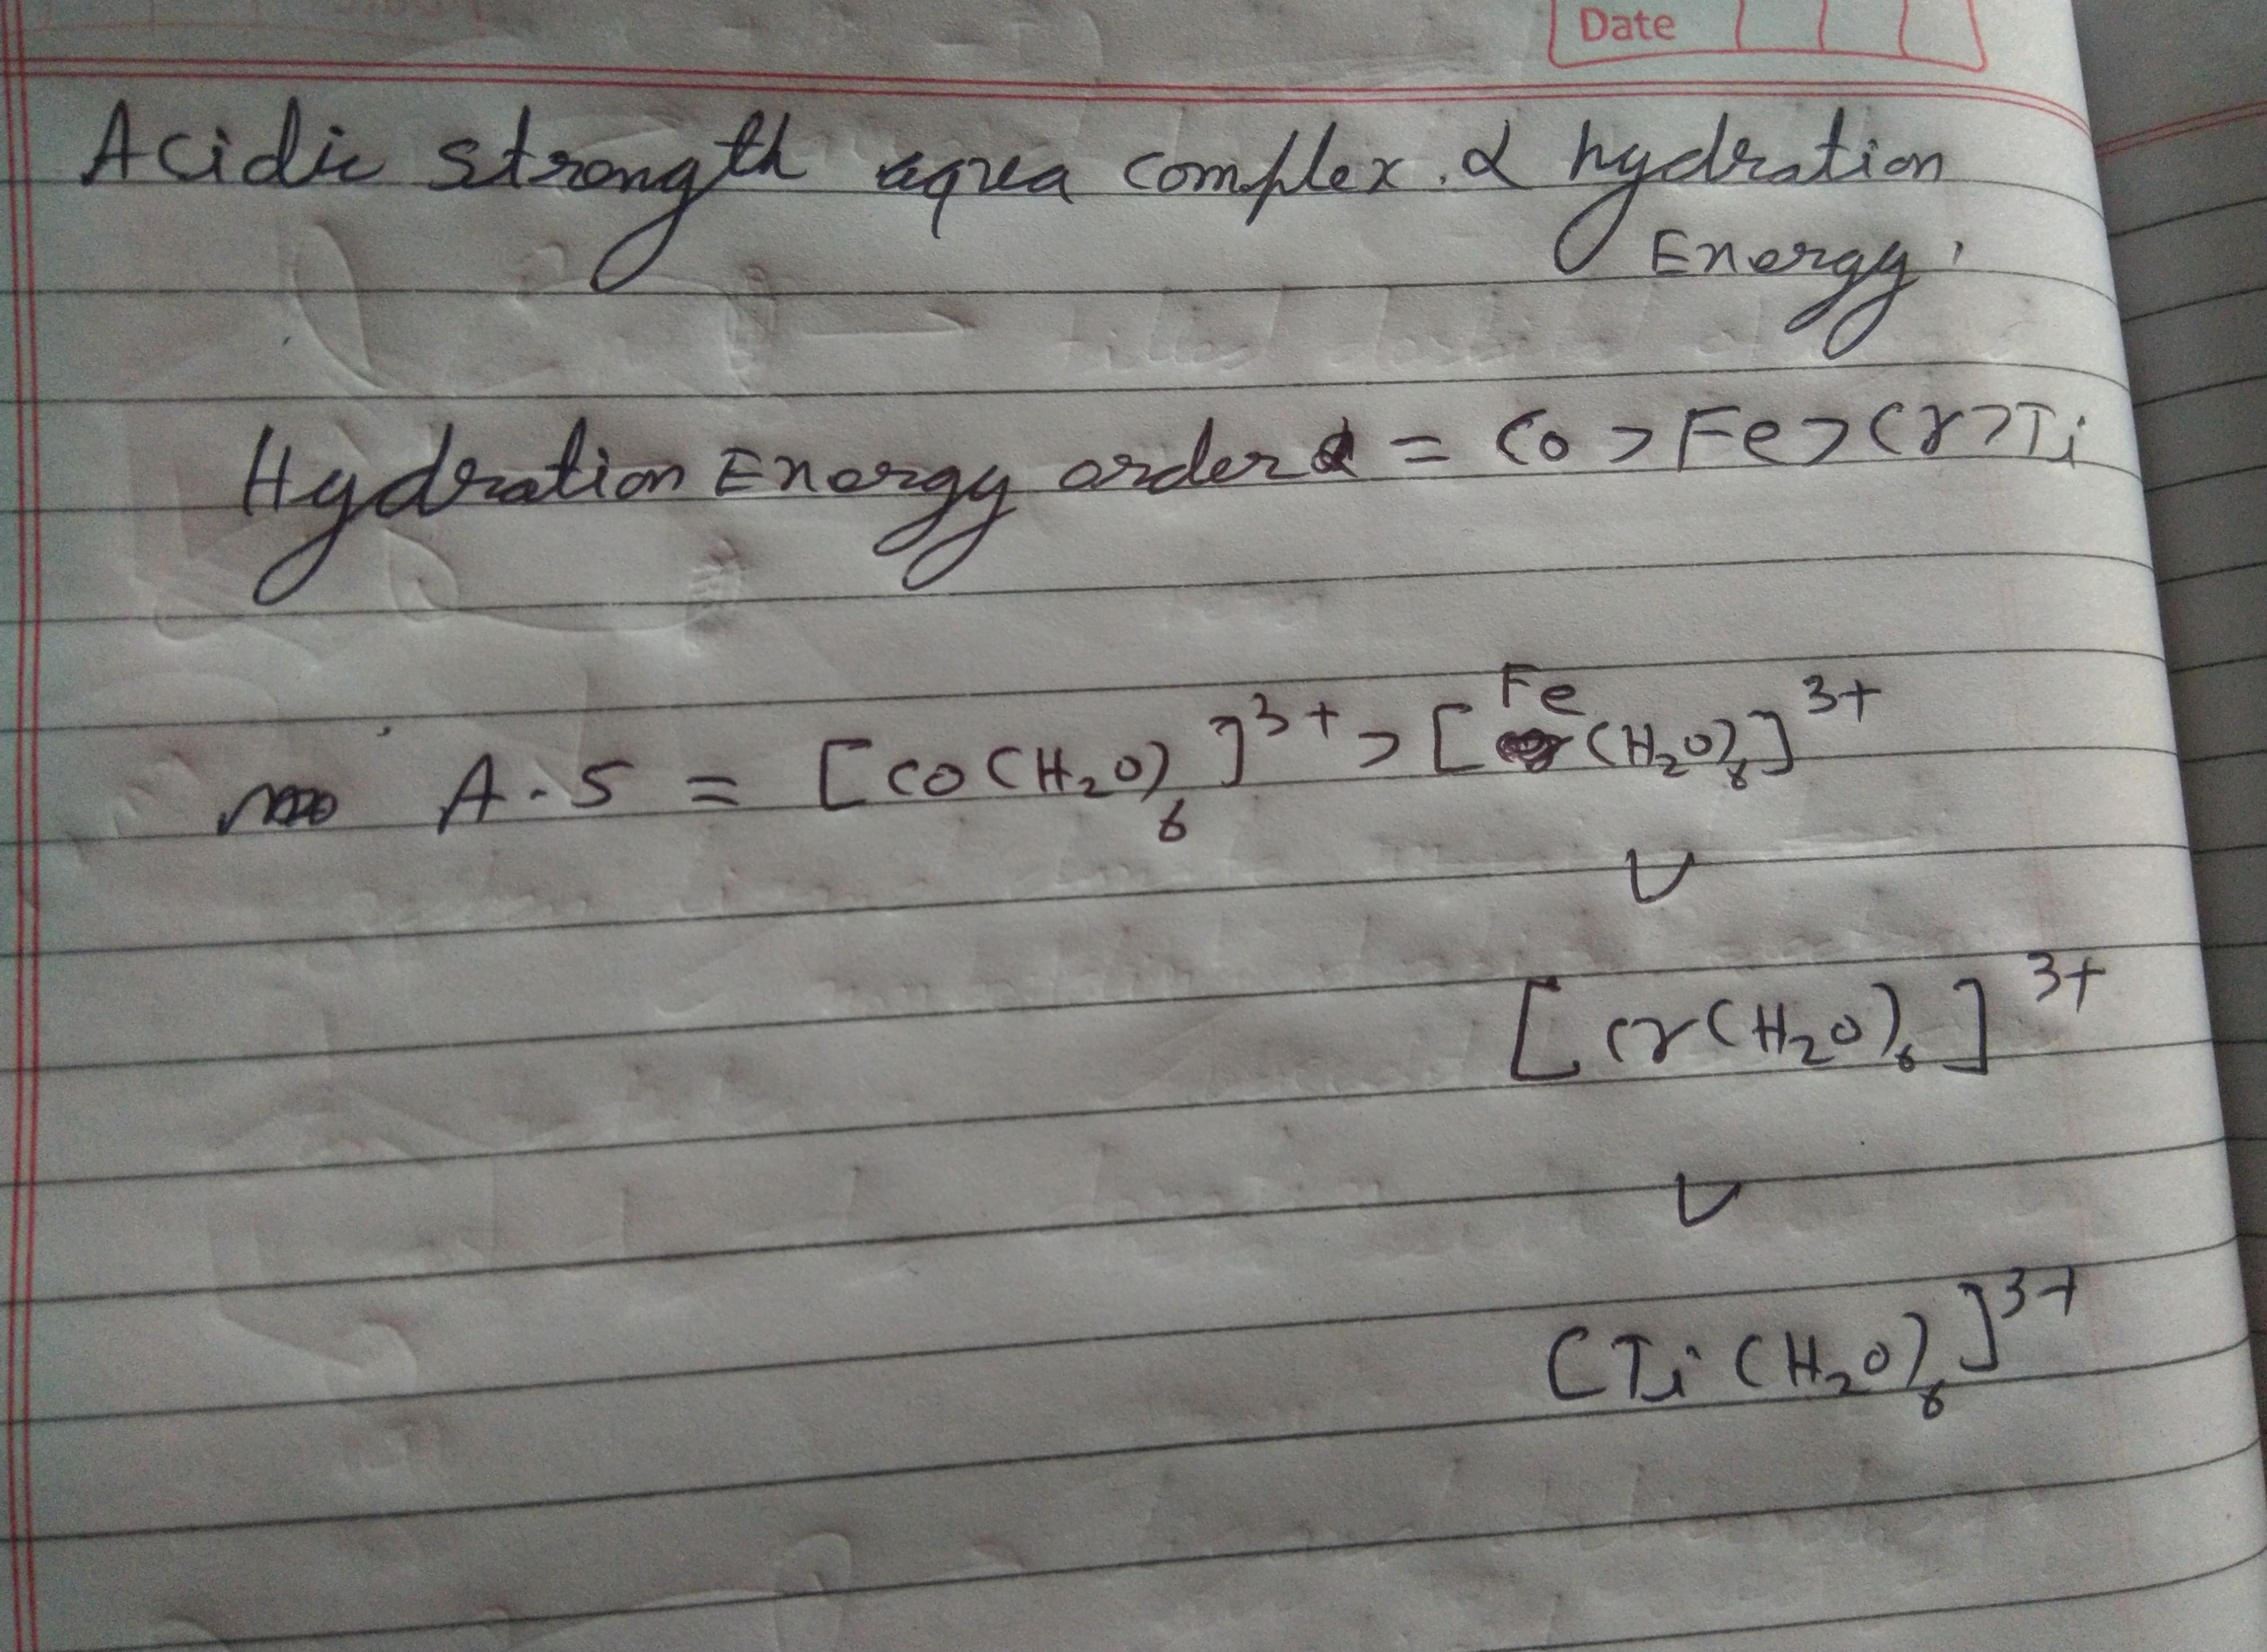 Date
Acidic strength aqua complex. α hydration
Energy.
Hydration Energy order = Co > Fe > Cr > Ti
A.S = [Co(H₂O)₆]³⁺ > [Fe(H₂O)₆]³⁺
V
[Cr(H₂O)₆]³⁺
V
[Ti(H₂O)₆]³⁺